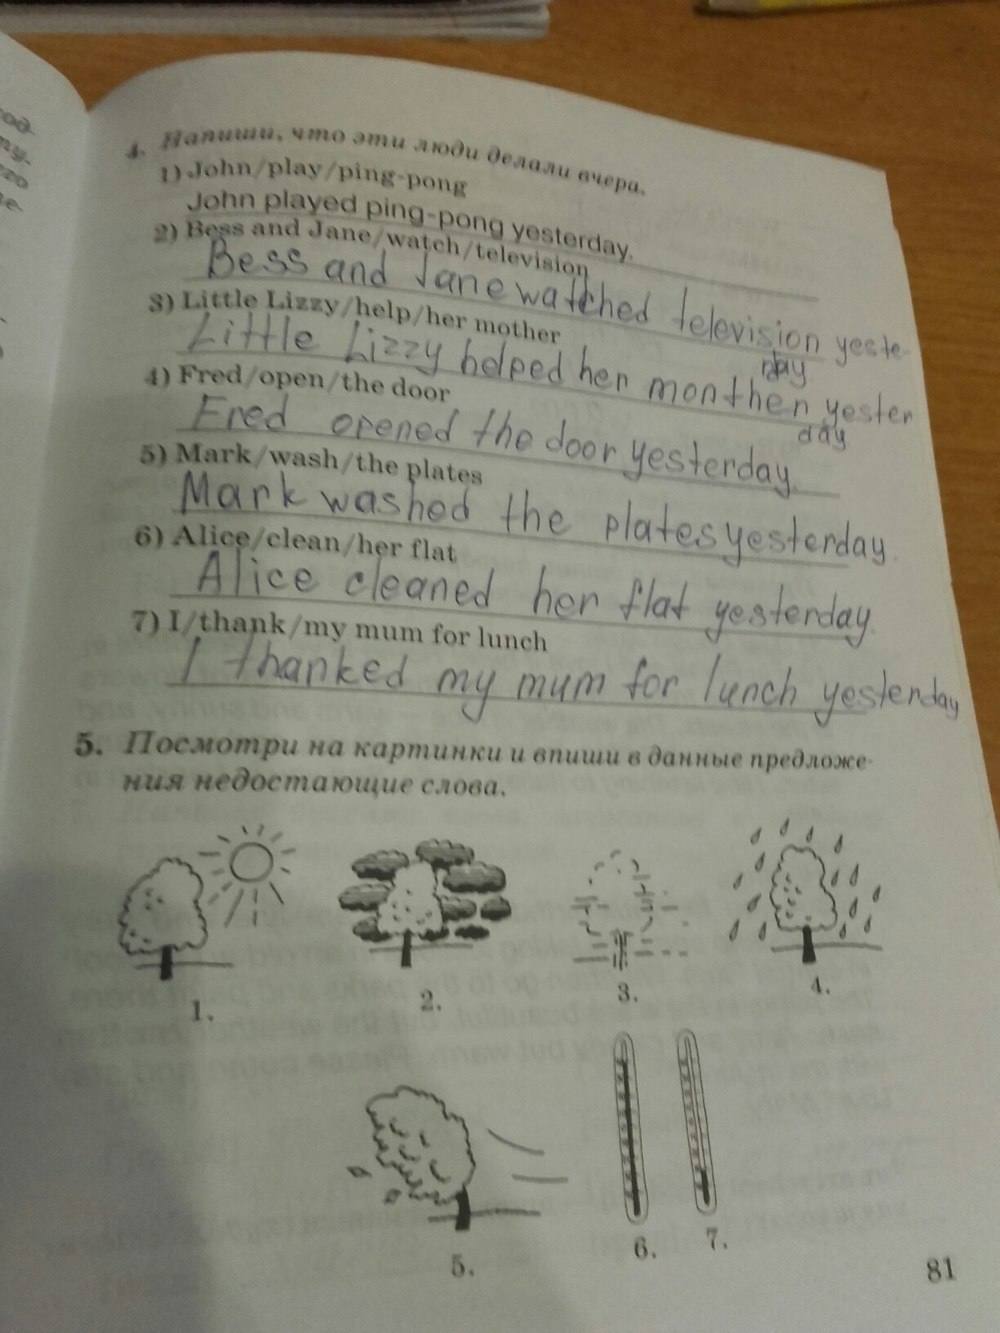 4. Напиши, что эти люди делали вчера.
1) John/play/ping-pong
John played ping-pong yesterday.
2) Bess and Jane/watch/television
Bess and Jane watched television yeste-
rday.
3) Little Lizzy/help/her mother
Little Lizzy helped her monther yester
day
4) Fred/open/the door
Fred opened the door yesterday.
5) Mark/wash/the plates
Mark washed the plates yesterday.
6) Alice/clean/her flat
Alice cleaned her flat yesterday.
7) I/thank/my mum for lunch
I thanked my mum for lunch yesterday
5. Посмотри на картинки и впиши в данные предложе-
ния недостающие слова.
1.
2.
3.
4.
5.
6.
7.
81